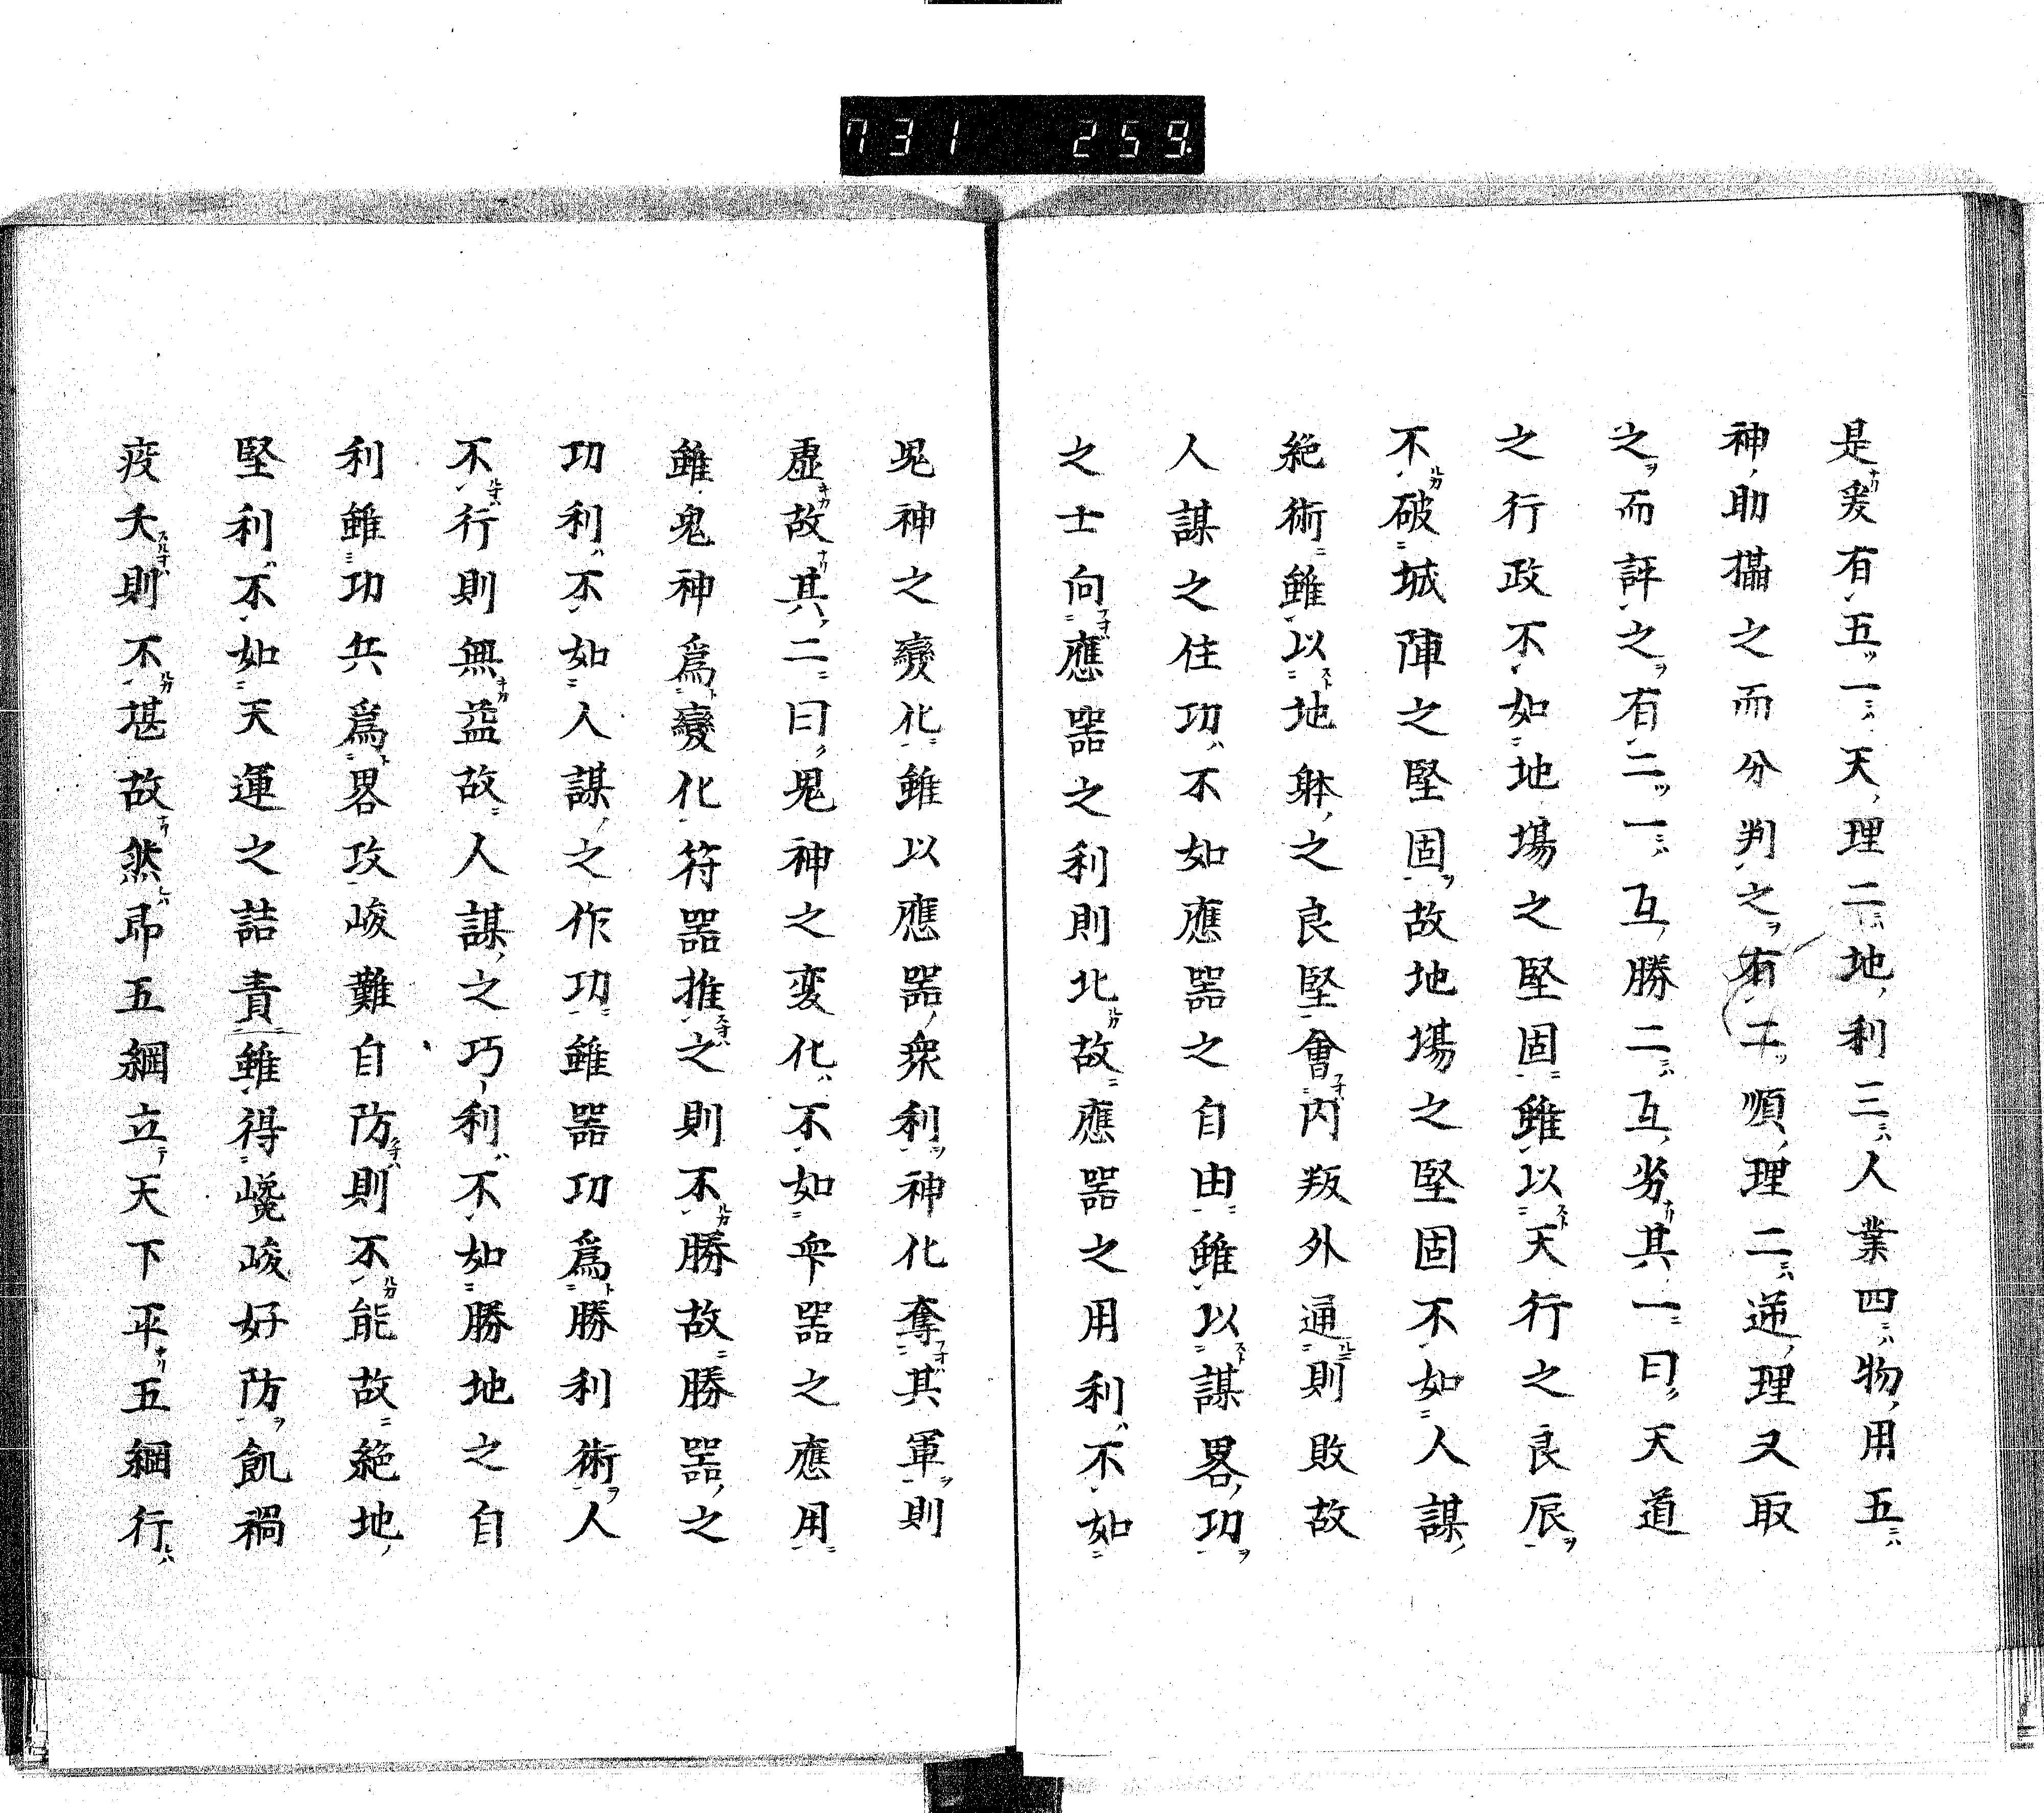 731 259
是爰有五一天理二地利三人業四物用五
神助攝之而分判之有二順理二逆理又取
之而評之有二一互勝二互劣其一曰天道
之行政不如地場之堅固雖以天行之良辰
不破城陣之堅固故地場之堅固不如人謀
絶術雖以地躰之良堅會内叛外通則敗故
人謀之住功不如應器之自由雖以謀畧功
之士向應器之利則北故應器之用利不如
鬼神之變化雖以應器衆利神化奪其軍則
虚故其二曰鬼神之変化不如卒器之應用
雖鬼神爲變化符器推之則不勝故勝器之
功利不如人謀之作功雖器功爲勝利術人
不行則無益故人謀之巧利不如勝地之自
利雖功兵爲畧攻峻難自防則不能故絶地
堅利不如天運之詰責雖得巉峻好防飢禍
疫夭則不堪故然即五綱立天下平五綱行